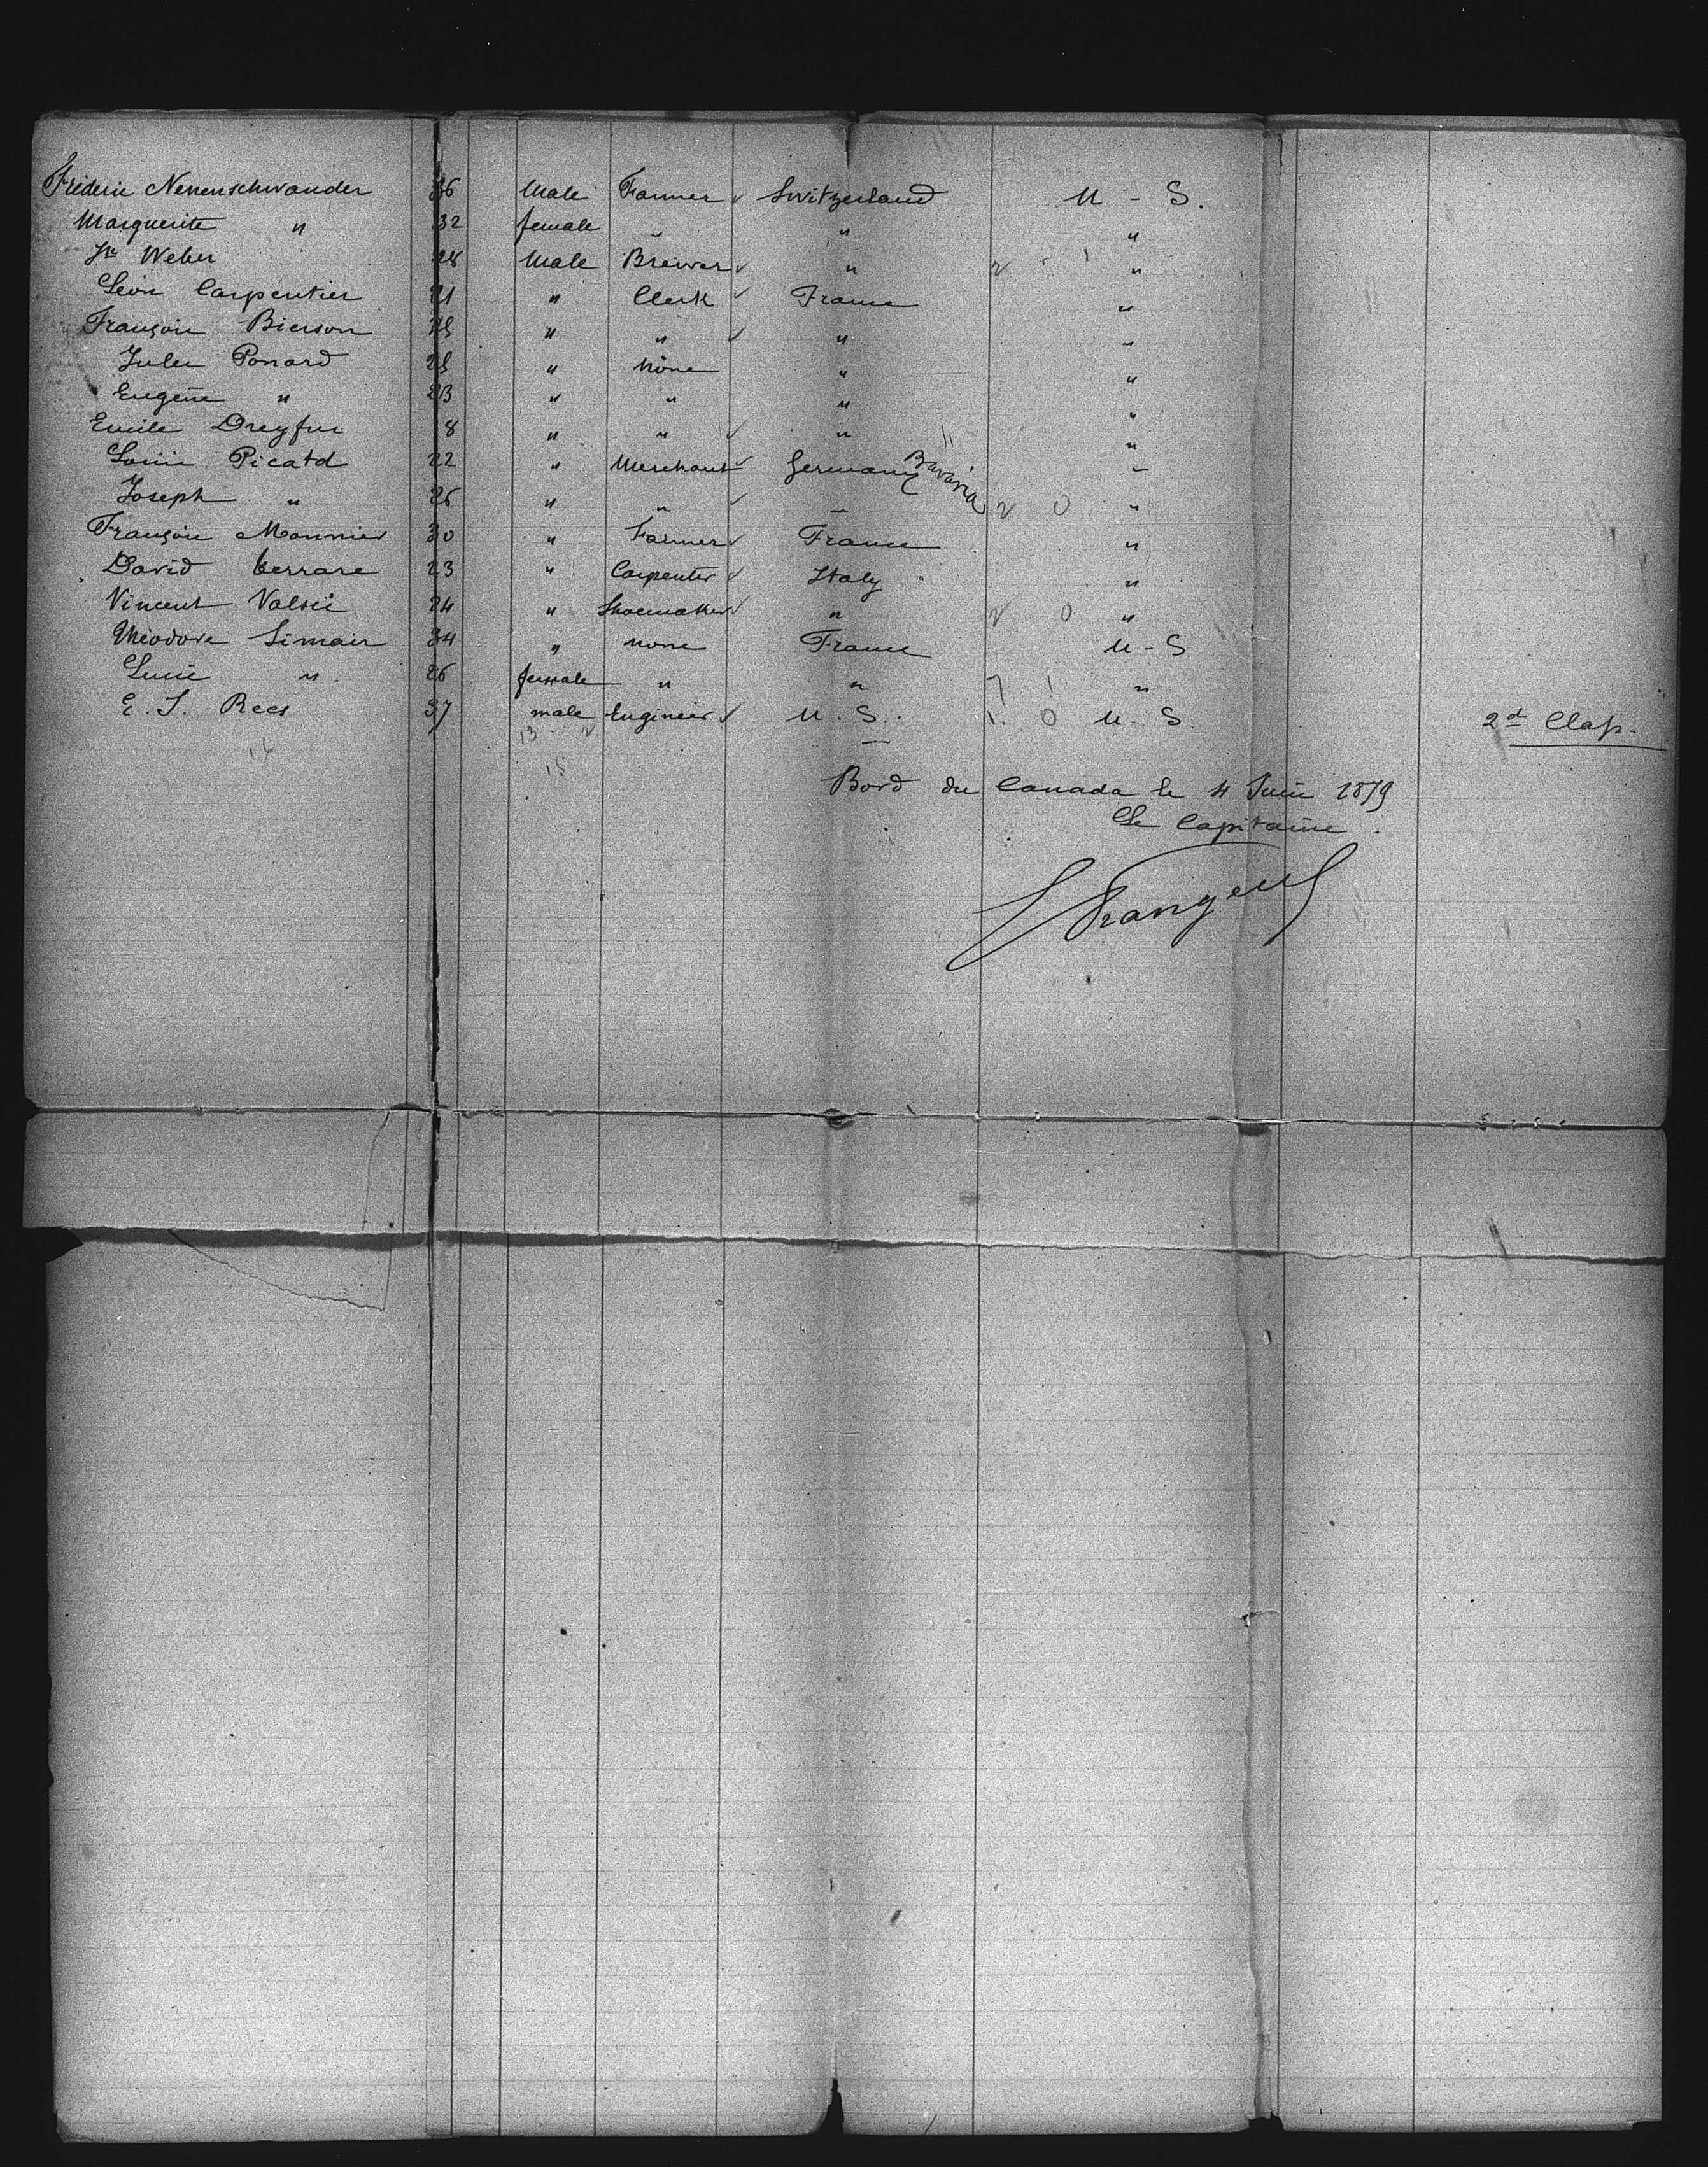 Fréderic Neuenschwander 36 Male Farmer ✓ Switzerland U - S.
Marguerite " 32 female " " "
Jn Weber 28 Male Brewer ✓ " "
Léon Carpentier 21 " Clerk ✓ France "
François Bierson " " ✓ " "
Jules Ponard " None " "
Eugène " 23 " " " "
Emile Dreyfus 8 " " ✓ " "
Louis Picard 22 " Merchant ✓ Germany Bavaria "
Joseph " 26 " " ✓ " 2 0 "
François Monnier 30 " Farmer ✓ France "
David Ferrare 23 " Carpenter ✓ Italy "
Vincent 24 " Shoemaker ✓ " 2 0 "
Théodore Simair 34 " none France U - S
Lucie " 26 female " " 7 1 "
E. S. Rees 37 male Engineer ✓ U. S. 1. 0 U. S. 2d Class.
13 2
16
15
Bord du Canada le 4 Juin 1879
Le Capitaine.
Frangeul